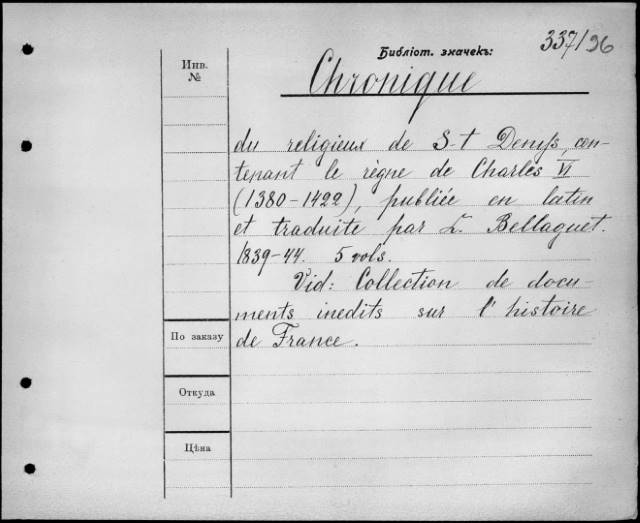 337/96
Библіот. значекъ:
Инв.
№
Chronique
du religieux de S-t Denys, con-
tenant le règne de Charles VI
(1380-1422), publiée en latin
et traduite par L. Bellaguet.
1839-44. 5 vols.
Vid: Collection de docu-
ments inedits sur l'histoire
По заказу
de France.
Откуда
Цѣна